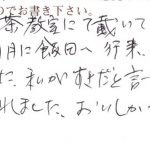 のでお書き下さい。
茶教室にて戴いて
月に飯田へ行来、
た、私がすきだと言
れました、おいしか